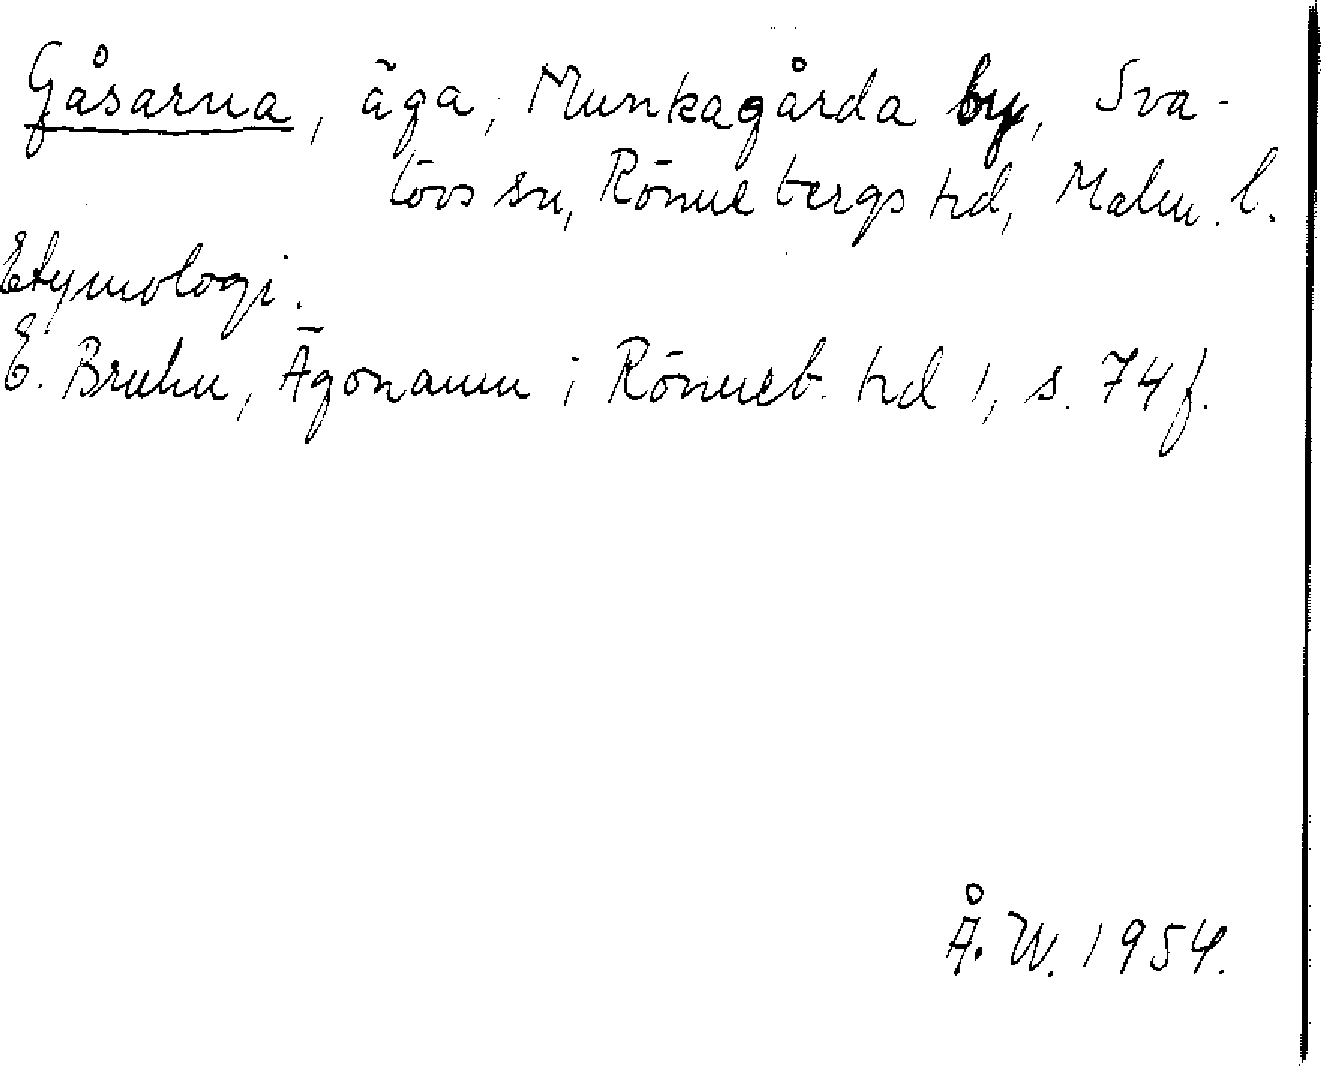 Gåsarna, äga, Munkagårda by, Sva-
lövs sn, Rönnebergs hd, Malm. l.
Etymologi.
E. Bruhn, Ägonamn i Rönneb. hd 1, s. 74 f.
Å. W. 1954.